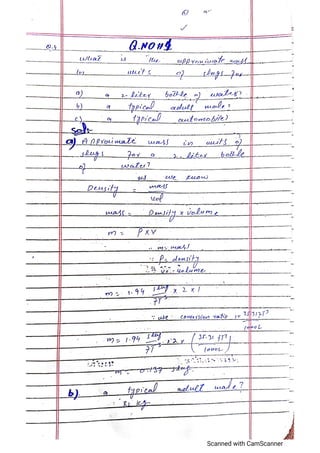 Q.NO#1
what is the approximate mass
in units of slugs for
a) a 2-liter bottle of water?
b) a typical adult male?
c) a typical automobile?
Sol:-
a) Approximate mass in units of
slugs for a 2-liter bottle
of water?
as we know
Density = mass
vol
mass = Density x volume
m = ρ x v
∵ m = mass
∵ ρ = density
v = volume
m = 1.94 slug x 2 x 1
ft³
∵ use conversion ratio
1000L
m = 1.94 slug x 2 x (35.31 ft³
ft³ 1000L)
m = 0.137 slug
b) a typical adult male?
kg
Scanned with CamScanner